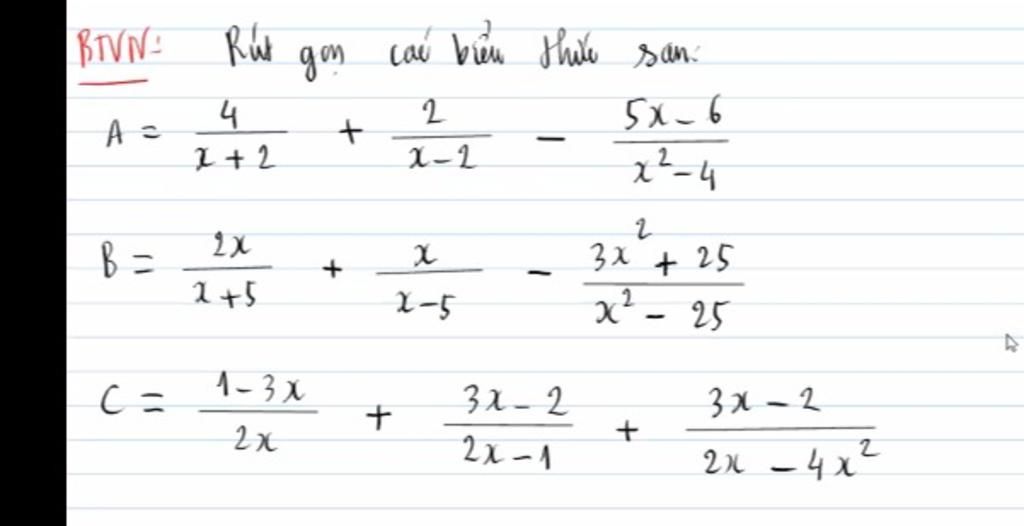 BTVN: Rút gọn các biểu thức sau:
A = 4/(x + 2) + 2/(x - 2) - (5x - 6)/(x² - 4)
B = 2x/(x + 5) + x/(x - 5) - (3x² + 25)/(x² - 25)
C = (1 - 3x)/(2x) + (3x - 2)/(2x - 1) + (3x - 2)/(2x - 4x²)